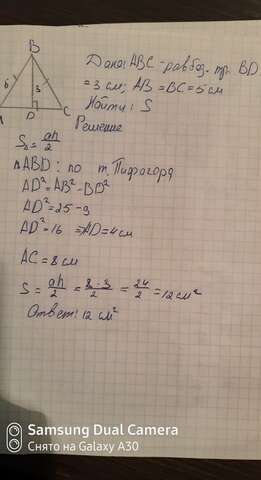 B
Дано: ABC - равноб. тр. BD
= 3 см; AB = BC = 5 см
Найти: S
5
3
D
C
Решение
S = ah/2
ABD: по т. Пифагора
AD² = AB² - BD²
AD² = 25 - 9
AD² = 16 => AD = 4 см
AC = 8 см
S = ah/2 = 8·3/2 = 24/2 = 12 см²
Ответ: 12 см²
Samsung Dual Camera
Снято на Galaxy A30